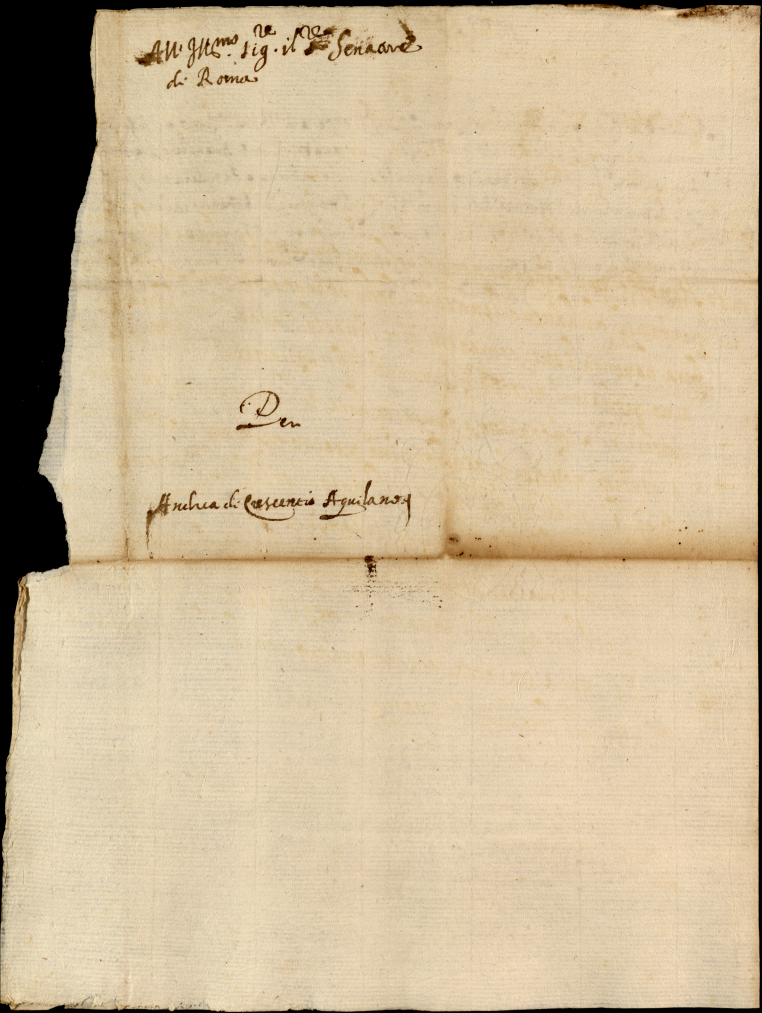 All' Ill.mo Sig.re il S.re Senatore
di Roma
Per
Andrea di Crescentio Aquilano